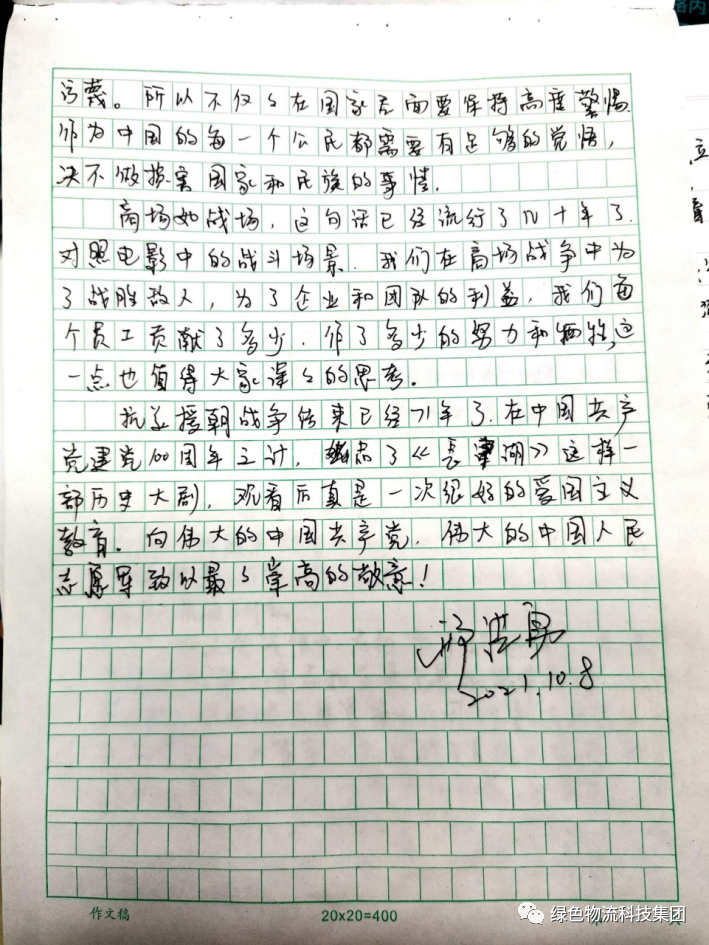 污蔑。所以不仅仅在国家层面要保持高度警惕.
作为中国的每一个公民都需要有足够的觉悟,
决不做损害国家和民族的事情.
商场如战场,这句话已经流行了几十年了.
对照电影中的战斗场景.我们在商场战争中为
了战胜敌人,为了企业和团队的利益,我们每
个员工贡献了多少.作了多少的努力和牺牲,这
一点也值得大家深深的思考。
抗美援朝战争结束已经71年了.在中国共产
党建党100周年之计,出品了《长津湖》这样一
部历史大剧,观看后真是一次很好的爱国主义
教育。向伟大的中国共产党.伟大的中国人民
志愿军致以最最崇高的敬意!
2021.10.8
作文稿
20×20=400
绿色物流科技集团